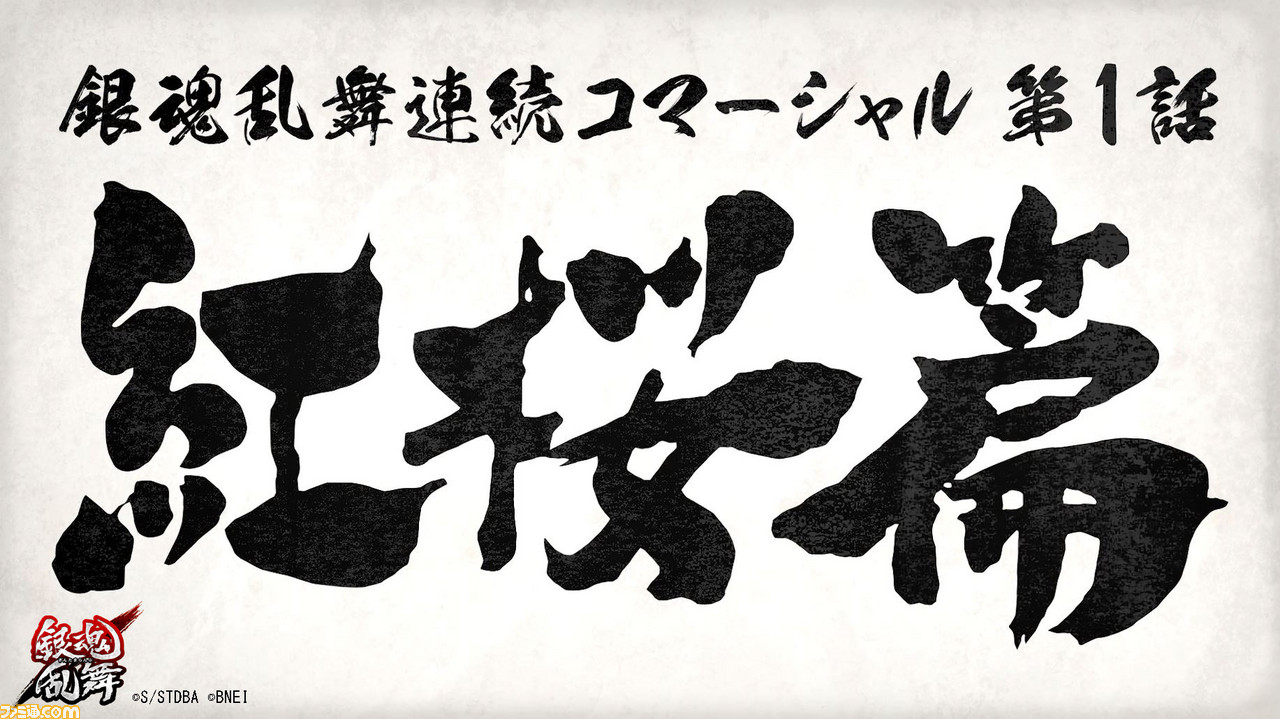 銀魂乱舞連続コマーシャル 第1話
紅桜篇
銀魂
乱舞
©S/STDBA ©BNEI
ファミ通.com